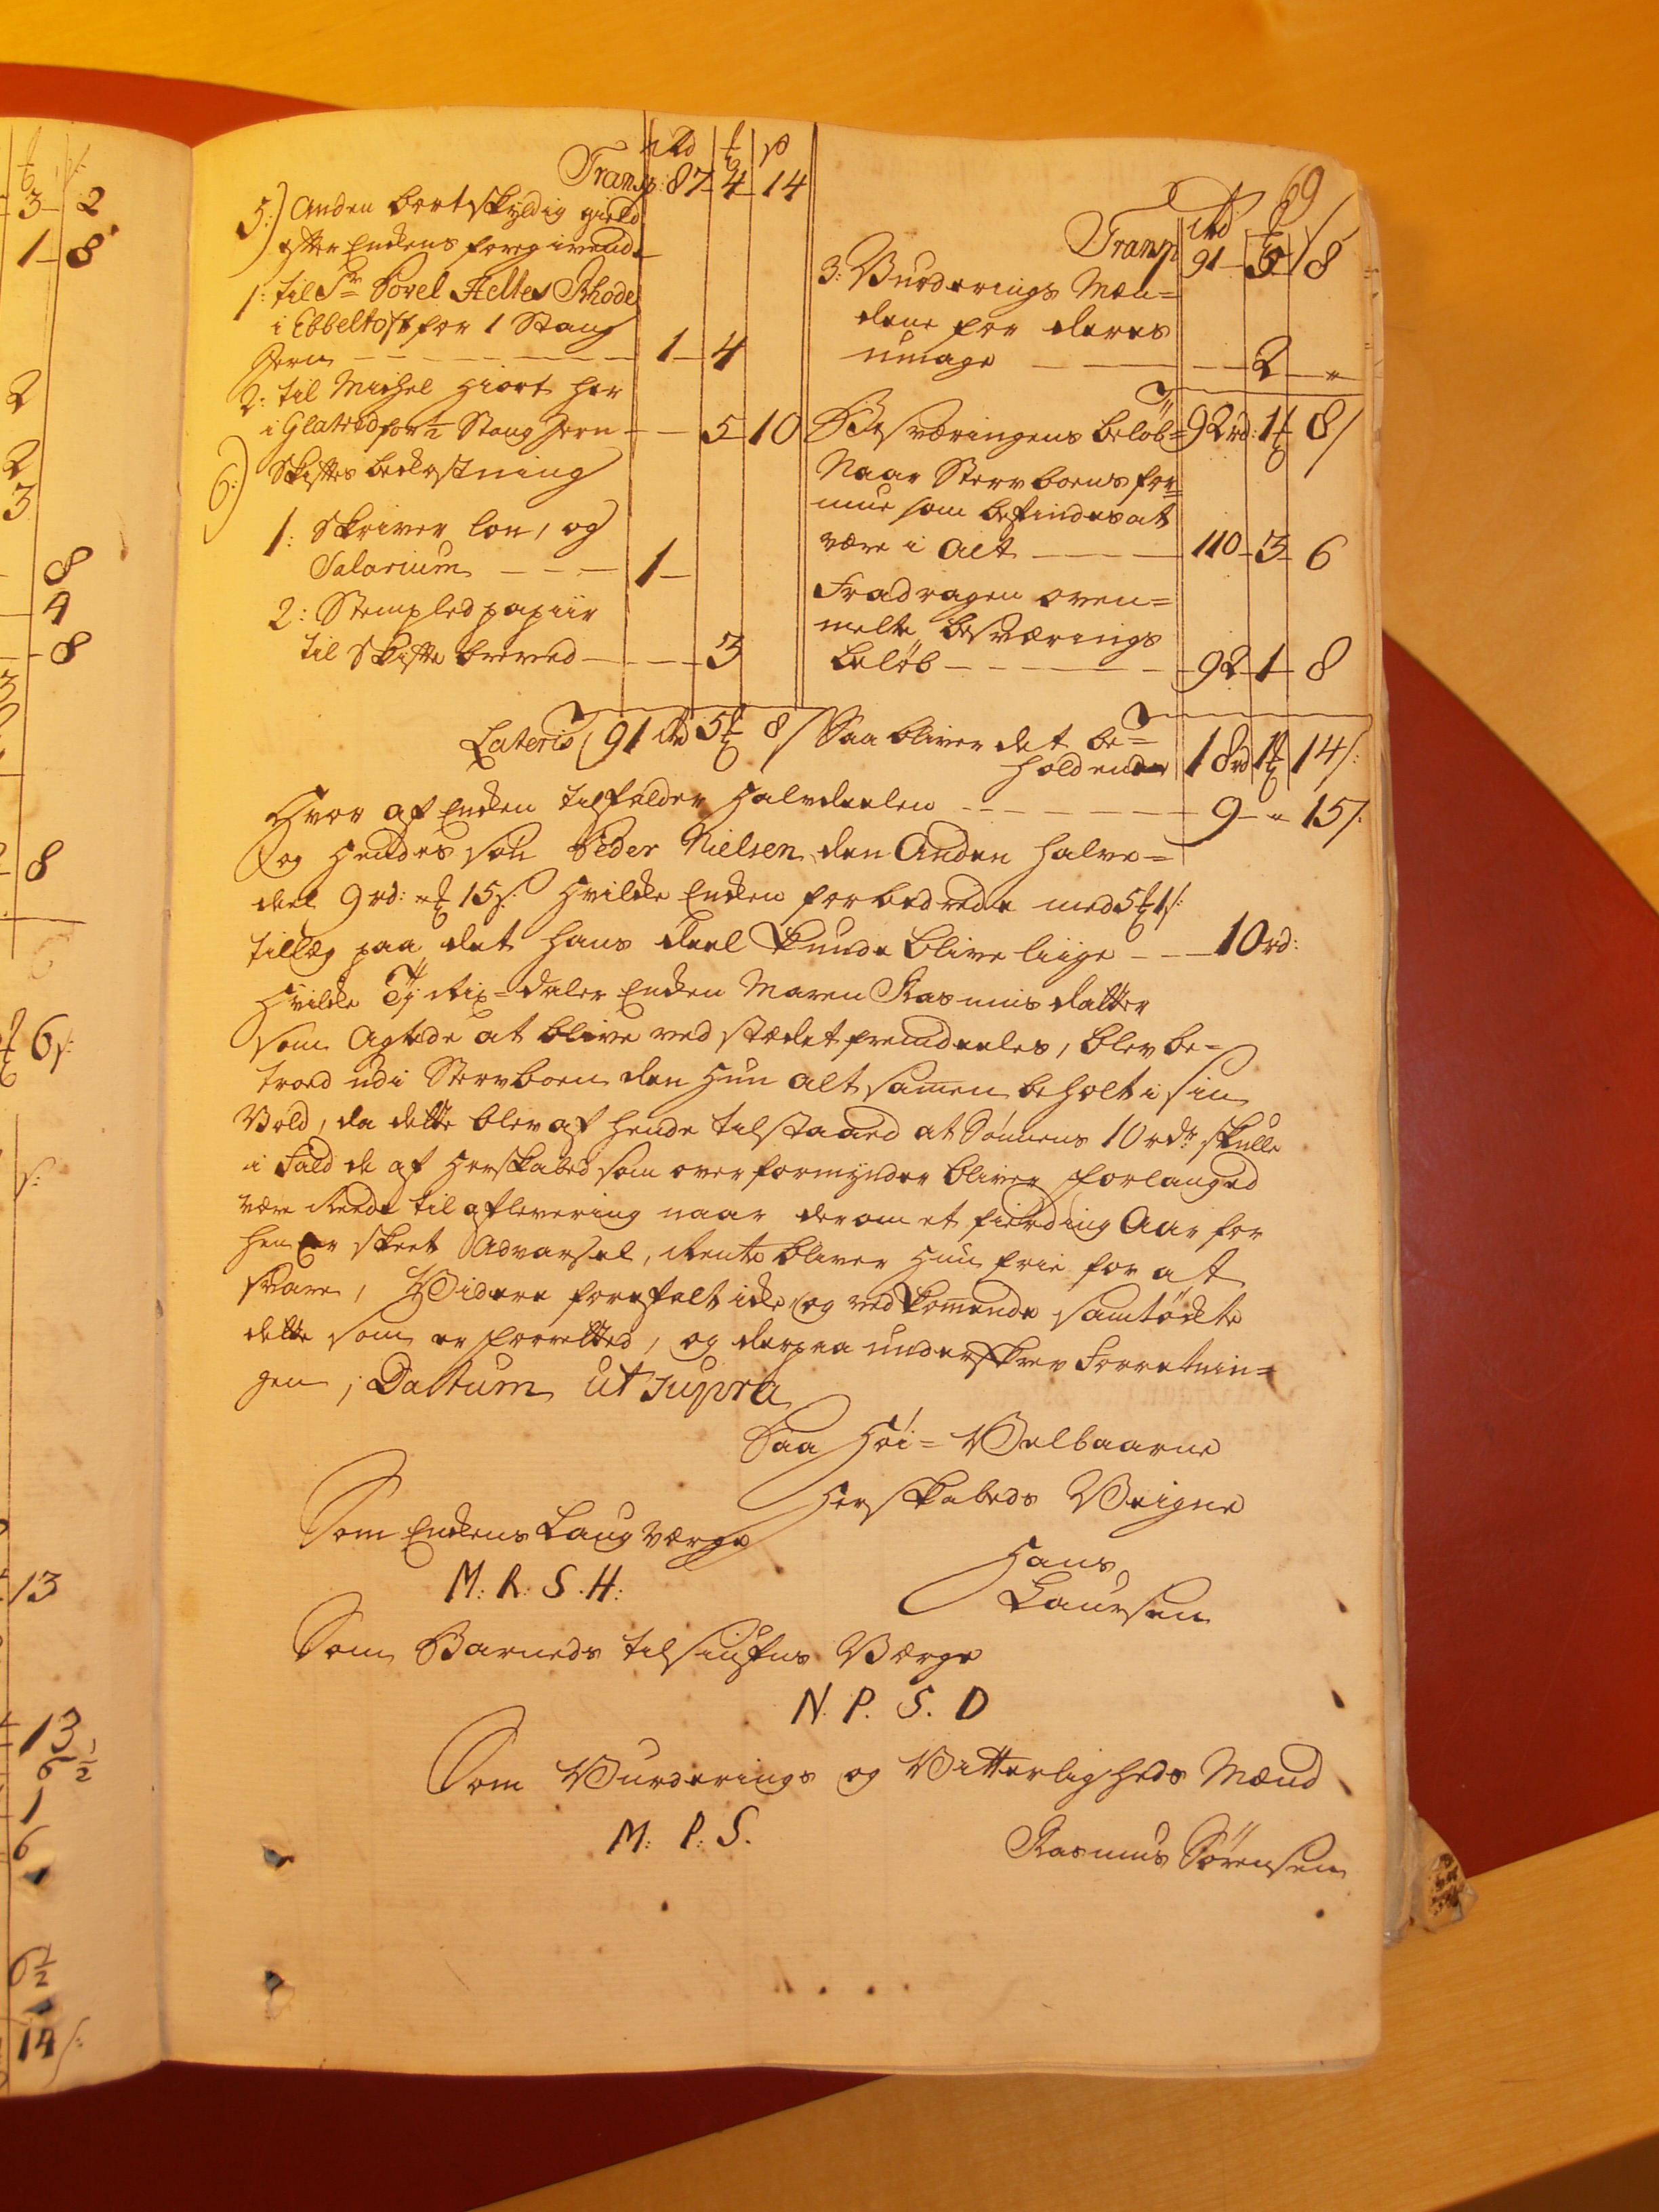 69
rd ₰ s
Transp: 87 – 4 – 14
5:) Anden bortskyldig gield
efter Enkens foregivende
1: til Sr Povel Aeltes Rhode
i Ebbeltoft for 1 Stang
Jern – – – 1 – 4
2: til Michel Hiort her
i Glatved for ½ Stang Jern – – 5 – 10
6:) Skiftes bekostning
1: Skriver løn, og
Salarium – – – 1 –
2: Stempled papiir
til Skifte brevet – – – 3
Lateris 91 rd 5 ₰ 8 s
Transp 91 – 5 – 8
3: Vurderings Mæn=
dene for deres
umage – – – 2 – "
Besværingens beløb= 92 rd: 1 ₰ 8 s
Naar Stervboens for=
mue som befindes at
være i Alt – – – 110 – 3 – 6
Fradragen oven=
melte besværings
beløb – – – 92 – 1 – 8
Saa bliver det be=
holdende 18 rd 1 ₰ 14 s:
Hvor af Enken tilfalder Halvdeelen – – – 9 – " 15 s:
og Hendes søn Peder Nielsen den Anden halve=
deel 9 rd: " ₰ 15 s: Hvilke Enken forbedrede med 5 ₰ 1 s:
tillæg paa det hans deel kunde blive liige – – – 10 rd:
Hvilke Ty Rix=daler Enken Maren Rasmus datter
som Agtede at blive ved stædet fremdeeles, blev be=
troed udi Stervboen den Hun alt samen beholt i sin
Vold, da dette blev af hende tilstaaed at Sønnens 10 rdr skulle
i Fald de af Herskabed som over formynder bliver forlanged
være Reede til aflevering naar derom et fierding Aar for
hen er skeet Advarsel, Rente bliver Hun frie for at
svare, Videre forefalt icke, og vedkomende samtøckte
dette som er forretted, og derpaa underskrev Forretnin=
gen, Dattum ut supra
Paa Høi=Velbaarne
Herskabeds Veigne
Hans
Laursen
Som Enkens Laug Værge
M: R: S. H:
Som Barneds tilsiufns Værge
N. P. S. D
Som Vurderings og Vitterligheds Mænd
M: P: S.
Rasmus Sörensen